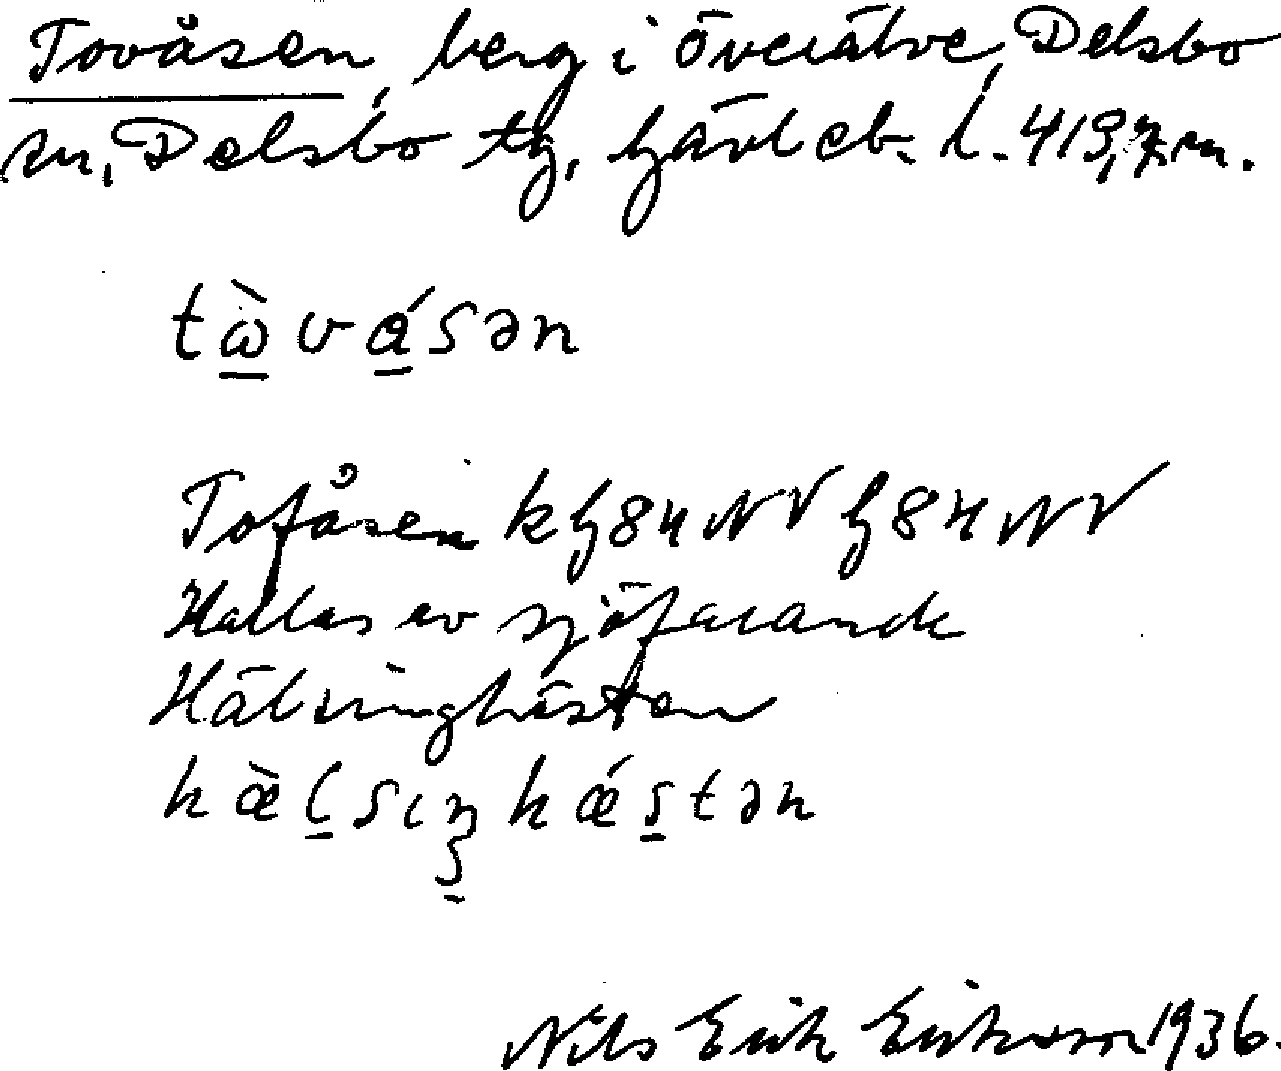 Tovåsen, berg i Överälve, Delsbo
sn, Delsbo tg, Gävleb. l. 419,7 m.
tὼvásən
Tofåsen kg 84 NV g 84 NV
Kallas av sjöfarande
Hälsinghästen
hæ̀lsıŋhǽstən
Nils Erik Eriksson 1936.